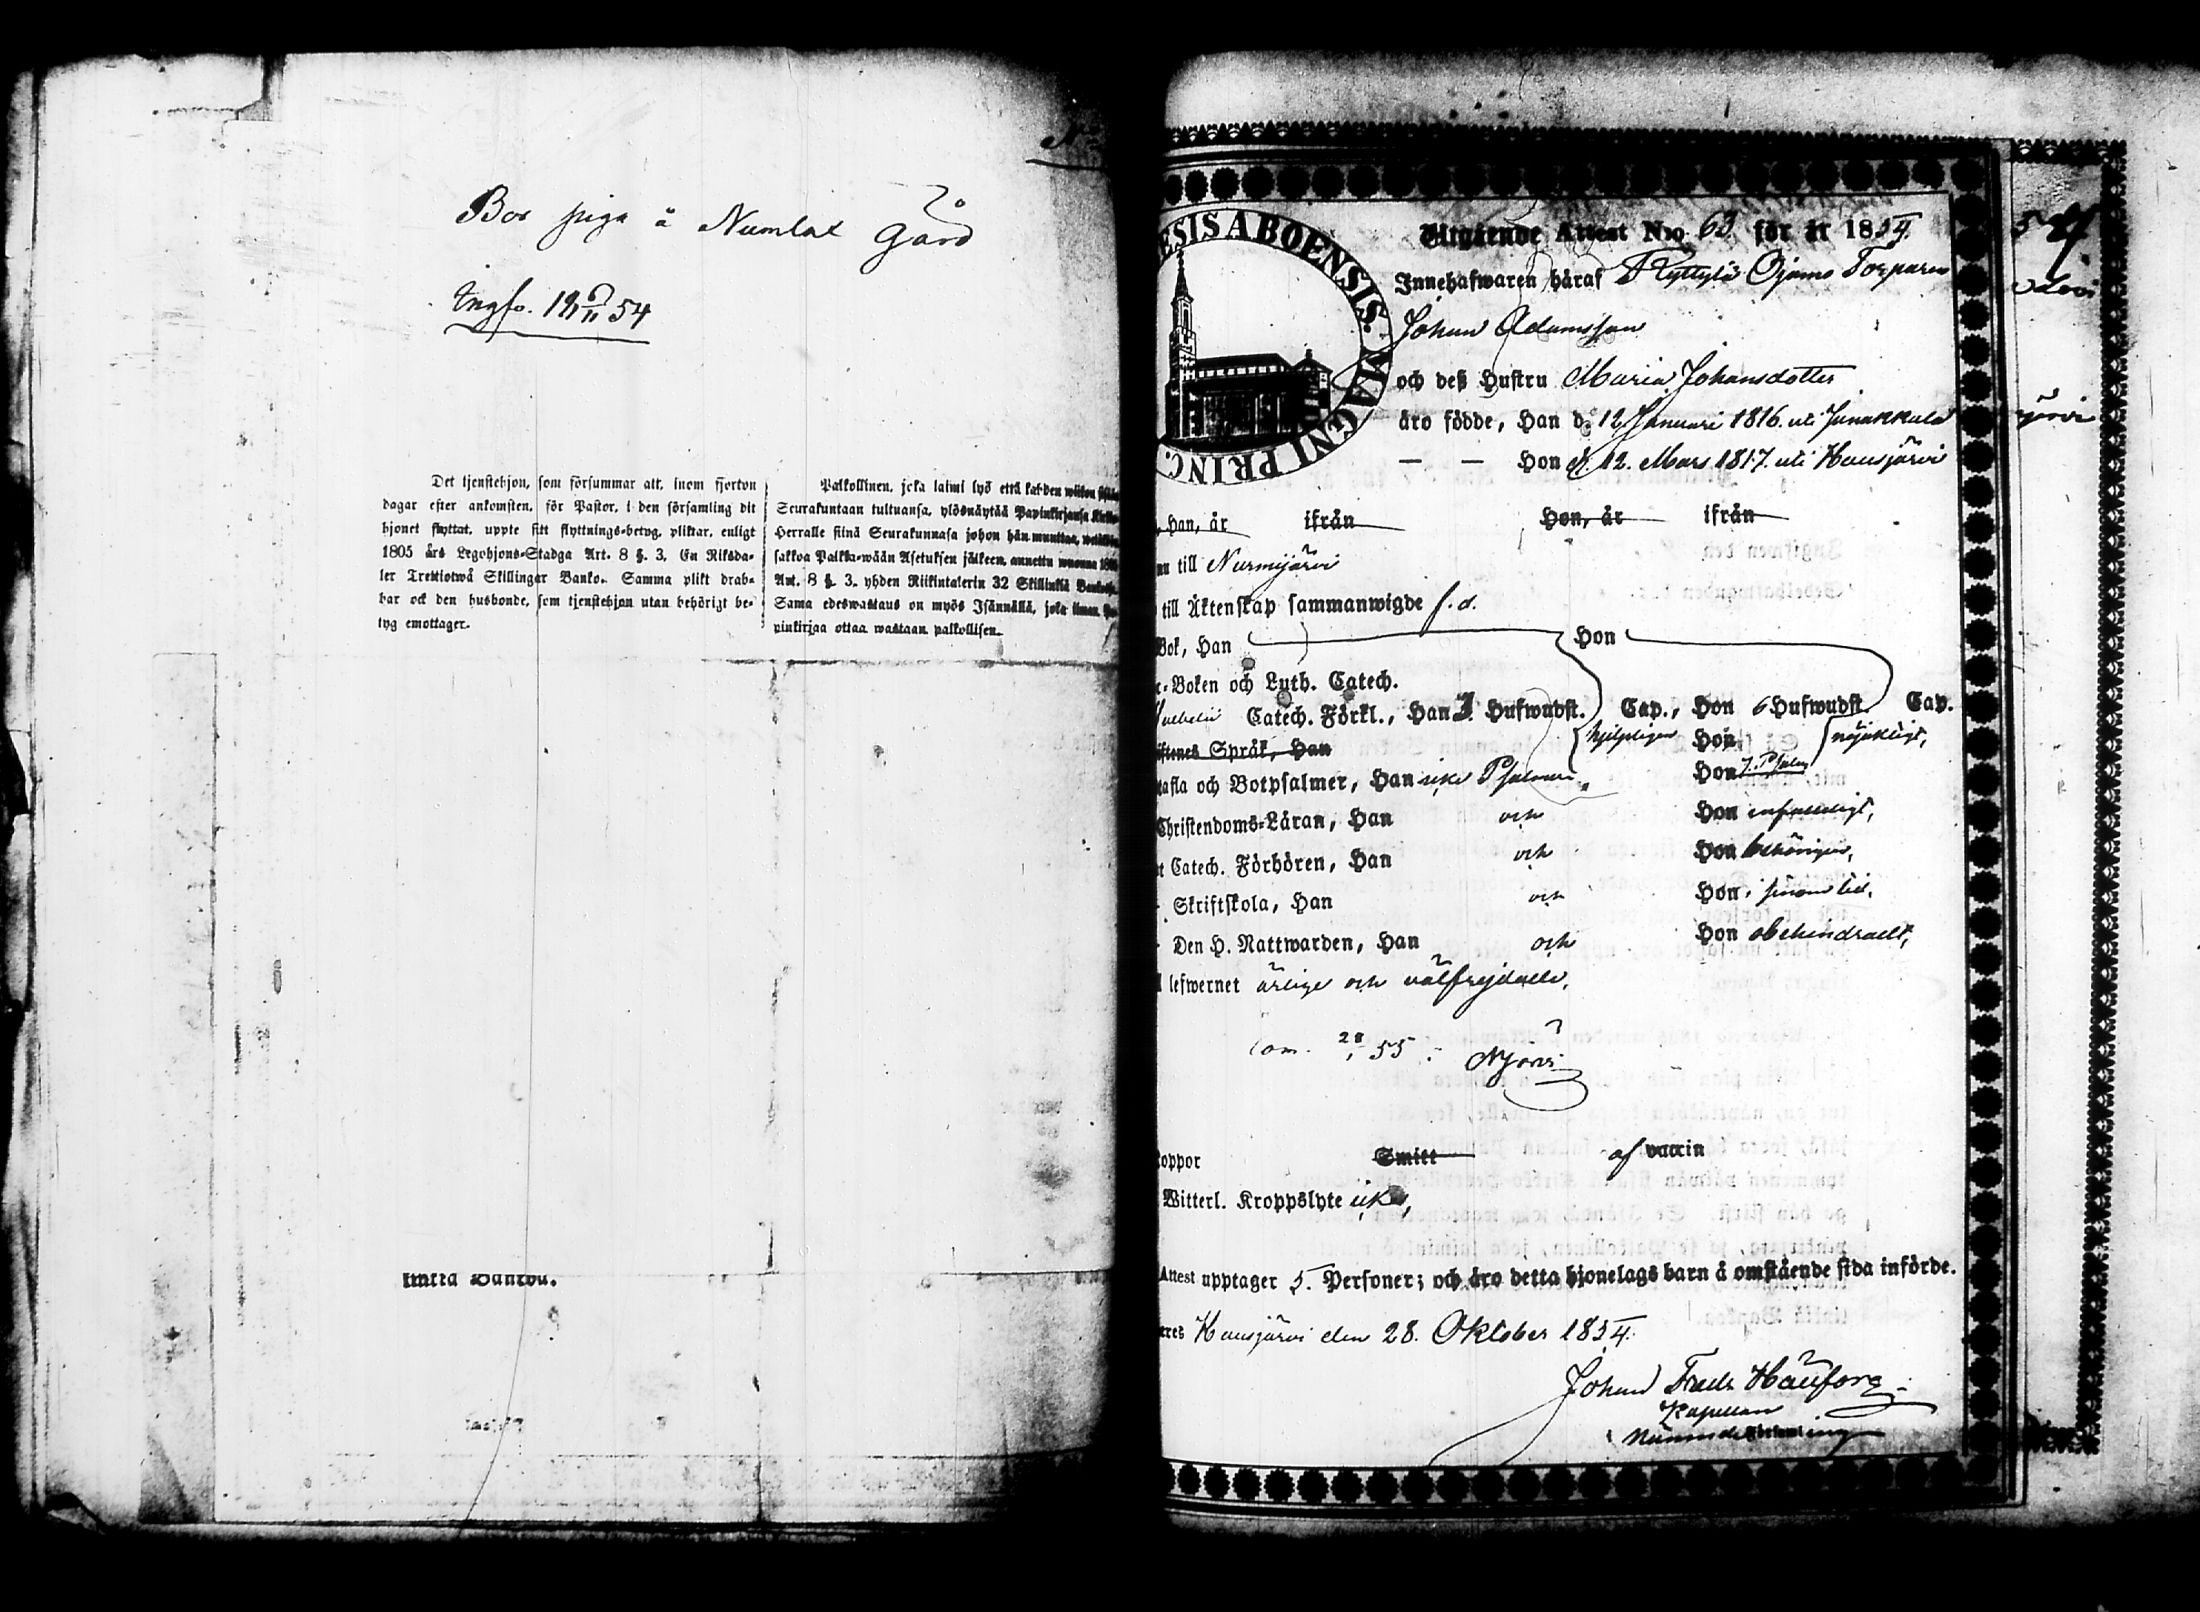 Bor piga å Numlax
Gård
Ingf. 19/11 54
Det tjenstehjon, som försummar att, inom fjorton
dagar efter ankomsten, för Pastor, i den församling dit
hjonet flyttat, uppte sitt flyttnings-betyg, pliktar, enligt
1805 års Legohjons-Stadga Art. 8 §. 3. En Riksda-
ler Trettiotwå Skillingar Banko. Samma plikt drab-
bar ock den husbonde, som tjenstehjon utan behörigt be-
tyg emottager.
Palkollinen, joka laimi lyö että kahden wiikon sisään
Seurakuntaan tultuansa, ylösnäytää Papinkirjansa Kirkko-
Herralle siinä Seurakunnasa johon hän muuttaa,
sakkoa Palkka-wään Asetuksen jälkeen, annettu wuonna 1805
Art. 8 §. 3. yhden Riikintalerin 32 Skillinkiä
Sama edeswastaus on myös Isännällä, joka ilman Pa-
pinkirjaa ottaa wastaan palkollisen.
sintiä Bankou.
ESIS ABOENSIS. MAGNI PRINC.
Utgående Attest N:o 63 för år 1854.
Innehafwaren häraf Ryttylä Ojamo Torparen
Johan Adamsson
och deß Hustru Maria Johansdotter
äro födde, Han d. 12 Januari 1816. uti Janakkala
— — Hon d. 12. Mars 1817. uti Hausjärvi
, Han, år ifrån Hon, år ifrån
nu till Nurmijärvi
till Äktenskap sammanwigde f. d.
Bok, Han Hon
c-Boken och Luth. Catech.
Catech. Förkl., Han 3 Hufwudst. Cap., Hon 6 Hufwudst. Cap.
hjelpligen Hon nöjaktigt,
Språk, Han
tafla och Botpsalmer, Han icke Psalmer, Hon 7. Psalm
Christendoms-Läran, Han och Hon enfaldigt,
Catech. Förhören, Han och Hon behörigen,
Skriftskola, Han och Hon, sinom tid,
Den H. Nattwarden, Han och Hon obehindradt,
lefwernet ärlige och välfrejdade,
Com. 28/1 55. Njärvi
koppor Smitt af vaccin
Witterl. Kroppslyte icke,
Attest upptager 5. Personer; och äro detta hjonelags barn å omstående sida införde.
Hausjärvi den 28. Oktober 1854.
Johan Fredr
Kapellan